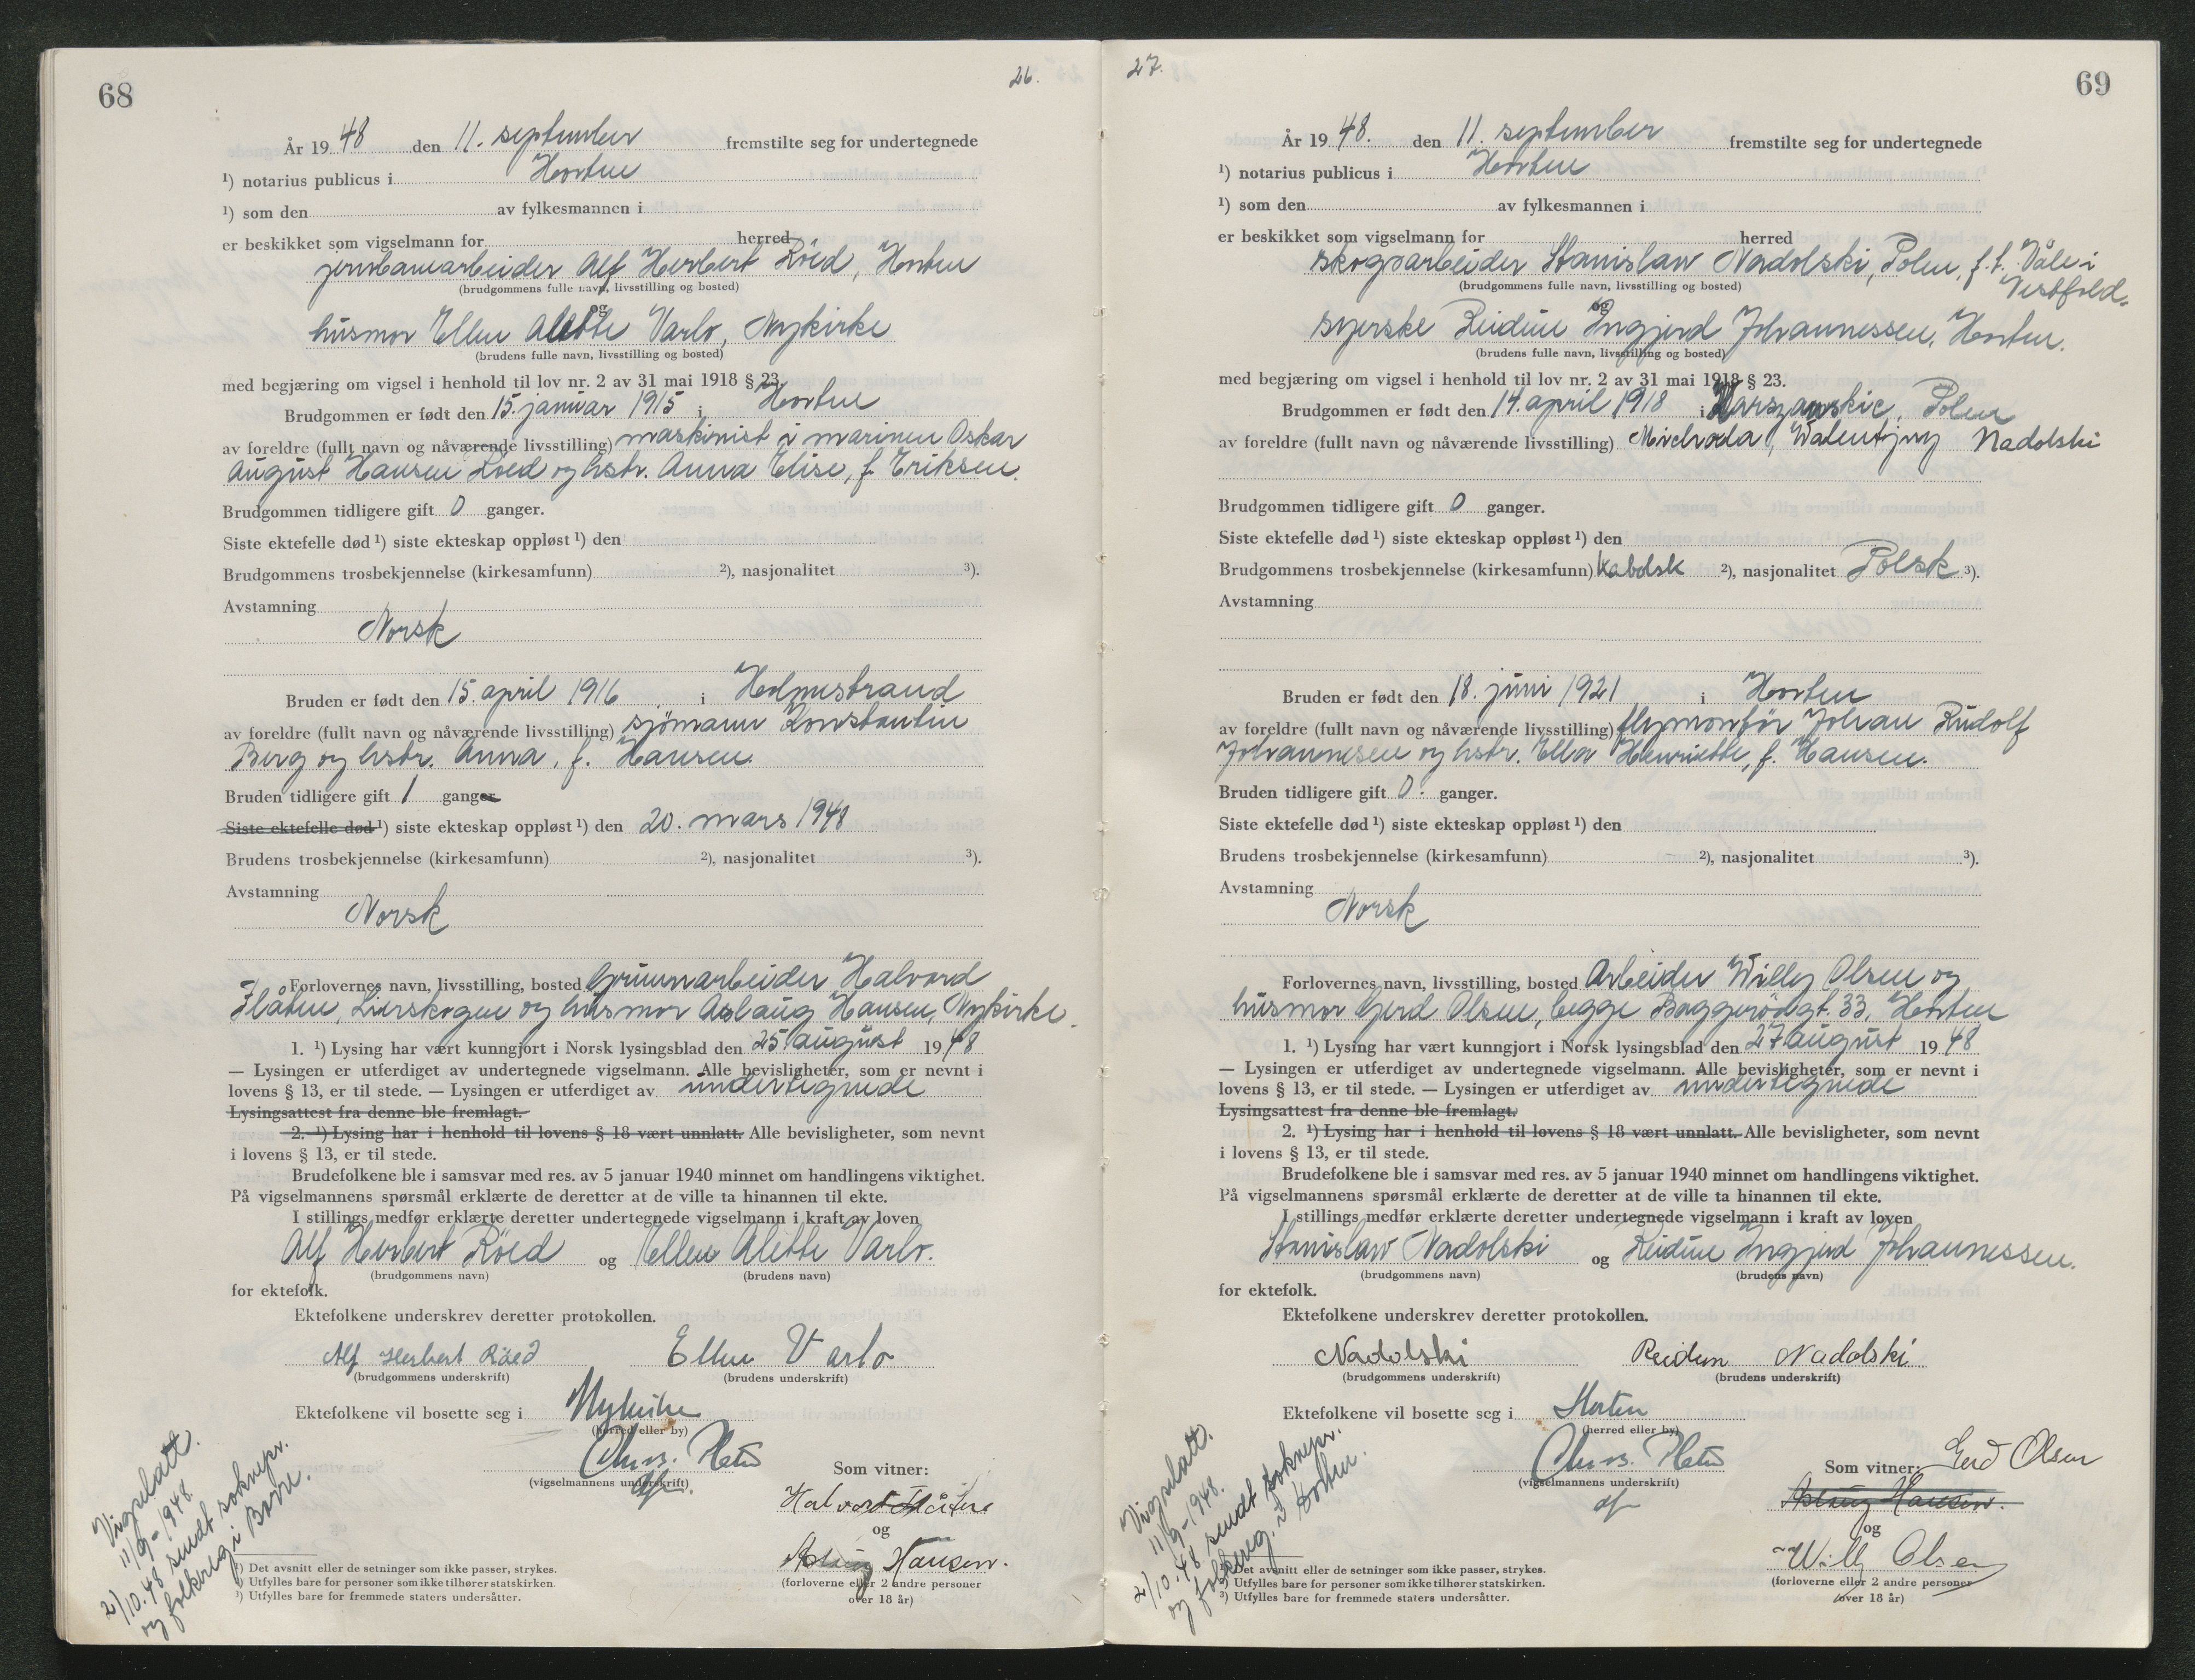 68
26.
År 19 48 den 11. september fremstilte seg for undertegnede
¹) notarius publicus i Horten
¹) som den av fylkesmannen i
er beskikket som vigselmann for herred
jernbanearbeider Alf Herbert Röed, Horten
(brudgommens fulle navn, livsstilling og bosted)
og
husmor Ellen Alette Varlo, Nykirke
(brudens fulle navn, livsstilling og bosted)
med begjæring om vigsel i henhold til lov nr. 2 av 31 mai 1918 § 23.
Brudgommen er født den 15. januar 1915 i Horten
av foreldre (fullt navn og nåværende livsstilling) maskinist i marinen Oskar
August Hansen Röed og hstr. Anna Elise, f. Eriksen.
Brudgommen tidligere gift 0 ganger.
Siste ektefelle død ¹) siste ekteskap oppløst ¹) den
Brudgommens trosbekjennelse (kirkesamfunn) ²), nasjonalitet ³).
Avstamning
Norsk
Bruden er født den 15. april 1916 i Holmestrand
av foreldre (fullt navn og nåværende livsstilling) sjömann Konstantin
Berg og hstr. Anna, f. Hansen.
Bruden tidligere gift 1 ganger
Siste ektefelle død ¹) siste ekteskap oppløst ¹) den 20. mars 1948
Brudens trosbekjennelse (kirkesamfunn) ²), nasjonalitet ³).
Avstamning
Norsk
Forlovernes navn, livsstilling, bosted Grünnarbeider Halvard
Flåten, Lierskogen og husmor Aslaug Hansen, Nykirke.
1. ¹) Lysing har vært kunngjort i Norsk lysingsblad den 25 august 1948
— Lysingen er utferdiget av undertegnede vigselmann. Alle bevisligheter, som er nevnt i
lovens § 13, er til stede. — Lysingen er utferdiget av undertegnede
Lysingsattest fra denne ble fremlagt.
2. ¹) Lysing har i henhold til lovens § 18 vært unnlatt. Alle bevisligheter, som nevnt
i lovens § 13, er til stede.
Brudefolkene ble i samsvar med res. av 5 januar 1940 minnet om handlingens viktighet.
På vigselmannens spørsmål erklærte de deretter at de ville ta hinannen til ekte.
I stillings medfør erklærte deretter undertegnede vigselmann i kraft av loven
Alf Herbert Röed og Ellen Alette Varlo.
(brudgommens navn) (brudens navn)
for ektefolk.
Ektefolkene underskrev deretter protokollen.
Alf Herbert Röed Ellen Varlo
(brudgommens underskrift) (brudens underskrift)
Ektefolkene vil bosette seg i Nykirke
(herred eller by)
Chrs.
(vigselmannens underskrift)
Som vitner:
Halvard Flåten
og
Aslaug Hansen.
(forloverne eller 2 andre personer
over 18 år)
Vigselatt.
11/9-1948.
2/10.48 sendt soknepr.
og folkereg i Borre.
¹) Det avsnitt eller de setninger som ikke passer, strykes.
²) Utfylles bare for personer som ikke tilhører statskirken.
³) Utfylles bare for fremmede staters undersåtter.
27.
69
År 19 48. den 11. september fremstilte seg for undertegnede
¹) notarius publicus i Horten
¹) som den av fylkesmannen i
er beskikket som vigselmann for herred
skogsarbeider Stanislaw Nadolski, Polen, f.t. Våle i
Vestfold.
(brudgommens fulle navn, livsstilling og bosted)
og
syerske Reidun Ingjerd Johannessen, Horten.
(brudens fulle navn, livsstilling og bosted)
med begjæring om vigsel i henhold til lov nr. 2 av 31 mai 1918 § 23.
Brudgommen er født den 14. april 1918 i Warszawskie, Polen
av foreldre (fullt navn og nåværende livsstilling) Nadolski
Brudgommen tidligere gift 0 ganger.
Siste ektefelle død ¹) siste ekteskap oppløst ¹) den
Brudgommens trosbekjennelse (kirkesamfunn) Katolsk ²), nasjonalitet Polsk ³).
Avstamning
Bruden er født den 18. juni 1921 i Horten
av foreldre (fullt navn og nåværende livsstilling) flymontör Johan Rudolf
Johannesen og hstr. Ella Henriette, f. Hansen.
Bruden tidligere gift 0. ganger.
Siste ektefelle død ¹) siste ekteskap oppløst ¹) den
Brudens trosbekjennelse (kirkesamfunn) ²), nasjonalitet ³).
Avstamning
Norsk
Forlovernes navn, livsstilling, bosted Arbeider Willy Olsen og
husmor Gerd Olsen, begge Baggerödgt. 33, Horten
1. ¹) Lysing har vært kunngjort i Norsk lysingsblad den 27 august 1948
— Lysingen er utferdiget av undertegnede vigselmann. Alle bevisligheter, som er nevnt i
lovens § 13, er til stede. — Lysingen er utferdiget av undertegnede
Lysingsattest fra denne ble fremlagt.
2. ¹) Lysing har i henhold til lovens § 18 vært unnlatt. Alle bevisligheter, som nevnt
i lovens § 13, er til stede.
Brudefolkene ble i samsvar med res. av 5 januar 1940 minnet om handlingens viktighet.
På vigselmannens spørsmål erklærte de deretter at de ville ta hinannen til ekte.
I stillings medfør erklærte deretter undertegnede vigselmann i kraft av loven
Stanislaw Nadolski og Reidun Ingjerd Johannessen.
(brudgommens navn) (brudens navn)
for ektefolk.
Ektefolkene underskrev deretter protokollen.
Nadolski Reidun Nadolski
(brudgommens underskrift) (brudens underskrift)
Ektefolkene vil bosette seg i Horten
(herred eller by)
Chrs.
(vigselmannens underskrift)
Som vitner: Gerd Olsen
Aslaug Hansen.
og
Willy Olsen
(forloverne eller 2 andre personer
over 18 år)
Vigselatt.
11/9-1948.
2/10.48 sendt soknepr.
og folkereg. i Horten.
¹) Det avsnitt eller de setninger som ikke passer, strykes.
²) Utfylles bare for personer som ikke tilhører statskirken.
³) Utfylles bare for fremmede staters undersåtter.